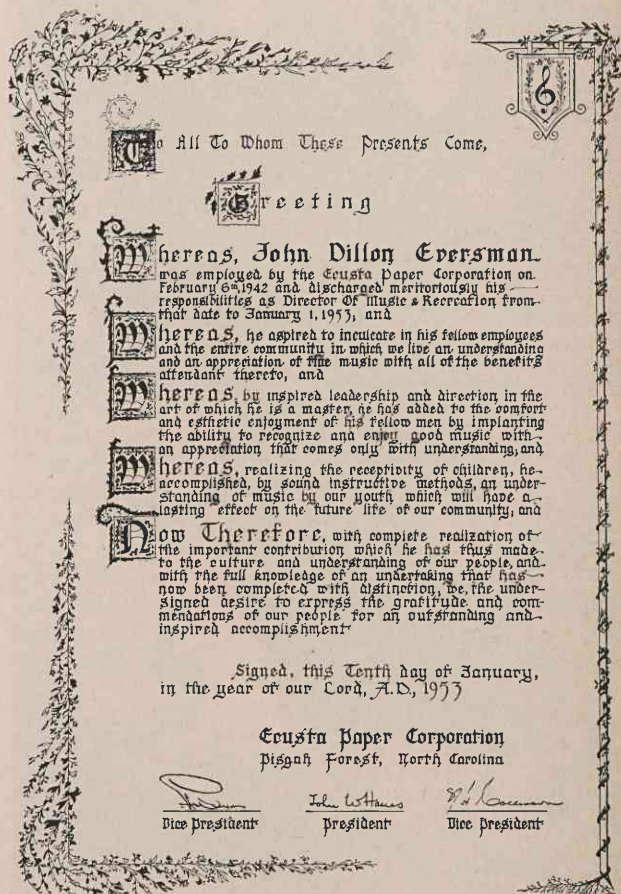 To All To Whom These Presents Come,
Greeting
Whereas, John Dillon Eversman
was employed by the Ecusta Paper Corporation on
February 6th, 1942 and discharged meritoriously his
responsibilities as Director Of Music & Recreation from
that date to January 1, 1953; and
Whereas, he aspired to inculcate in his fellow employees
and the entire community in which we live an understanding
and an appreciation of fine music with all of the benefits
attendant thereto, and
Whereas, by inspired leadership and direction in the
art of which he is a master, he has added to the comfort
and esthetic enjoyment of his fellow men by implanting
the ability to recognize and enjoy good music with
an appreciation that comes only with understanding; and
Whereas, realizing the receptivity of children, he
accomplished, by sound instructive methods, an under-
standing of music by our youth which will have a
lasting effect on the future life of our community; and
Now Therefore, with complete realization of
the important contribution which he has thus made
to the culture and understanding of our people, and
with the full knowledge of an undertaking that has
now been completed with distinction, we, the under-
signed desire to express the gratitude and com-
mendations of our people for an outstanding and
inspired accomplishment
Signed, this Tenth day of January,
in the year of our Lord, A.D., 1953
Ecusta Paper Corporation
Pisgah Forest, North Carolina
John W Hanes
Vice President President Vice President